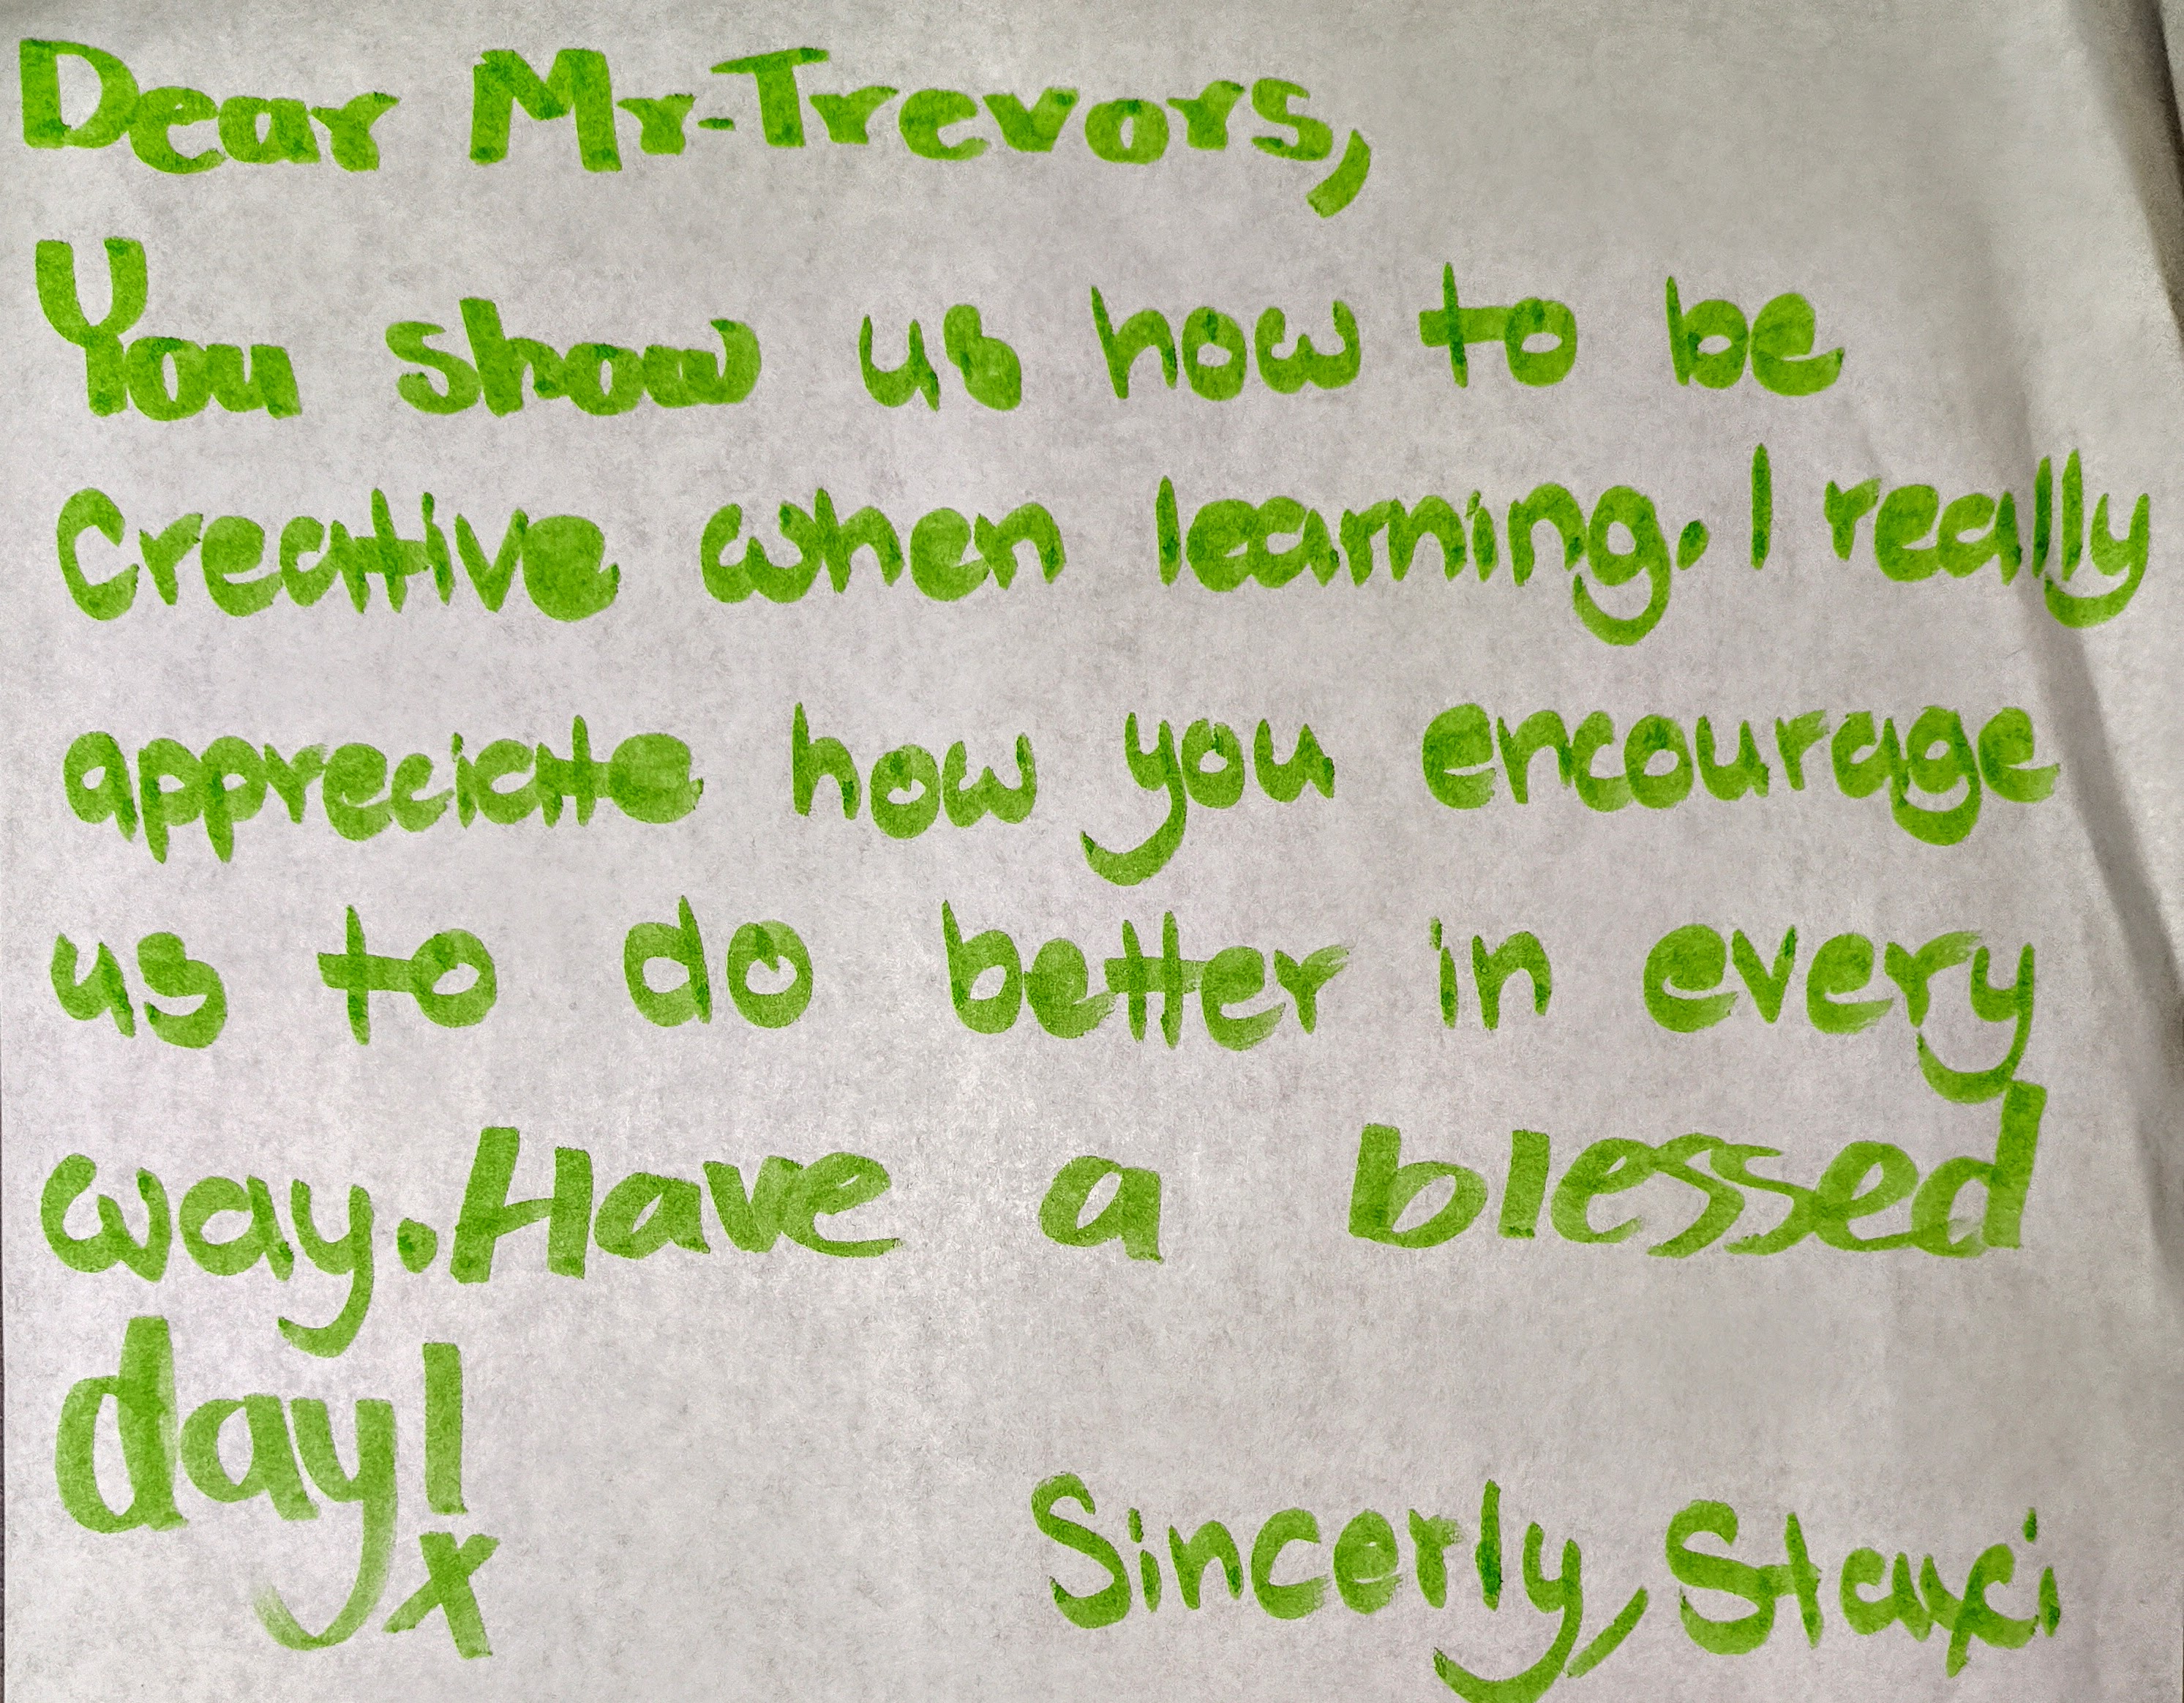 Dear Mr-Trevors,
You show us how to be
Creative when learning. I really
appreciate how you encourage
us to do better in every
way. Have a blessed
day!
x
Sincerly, Staxi